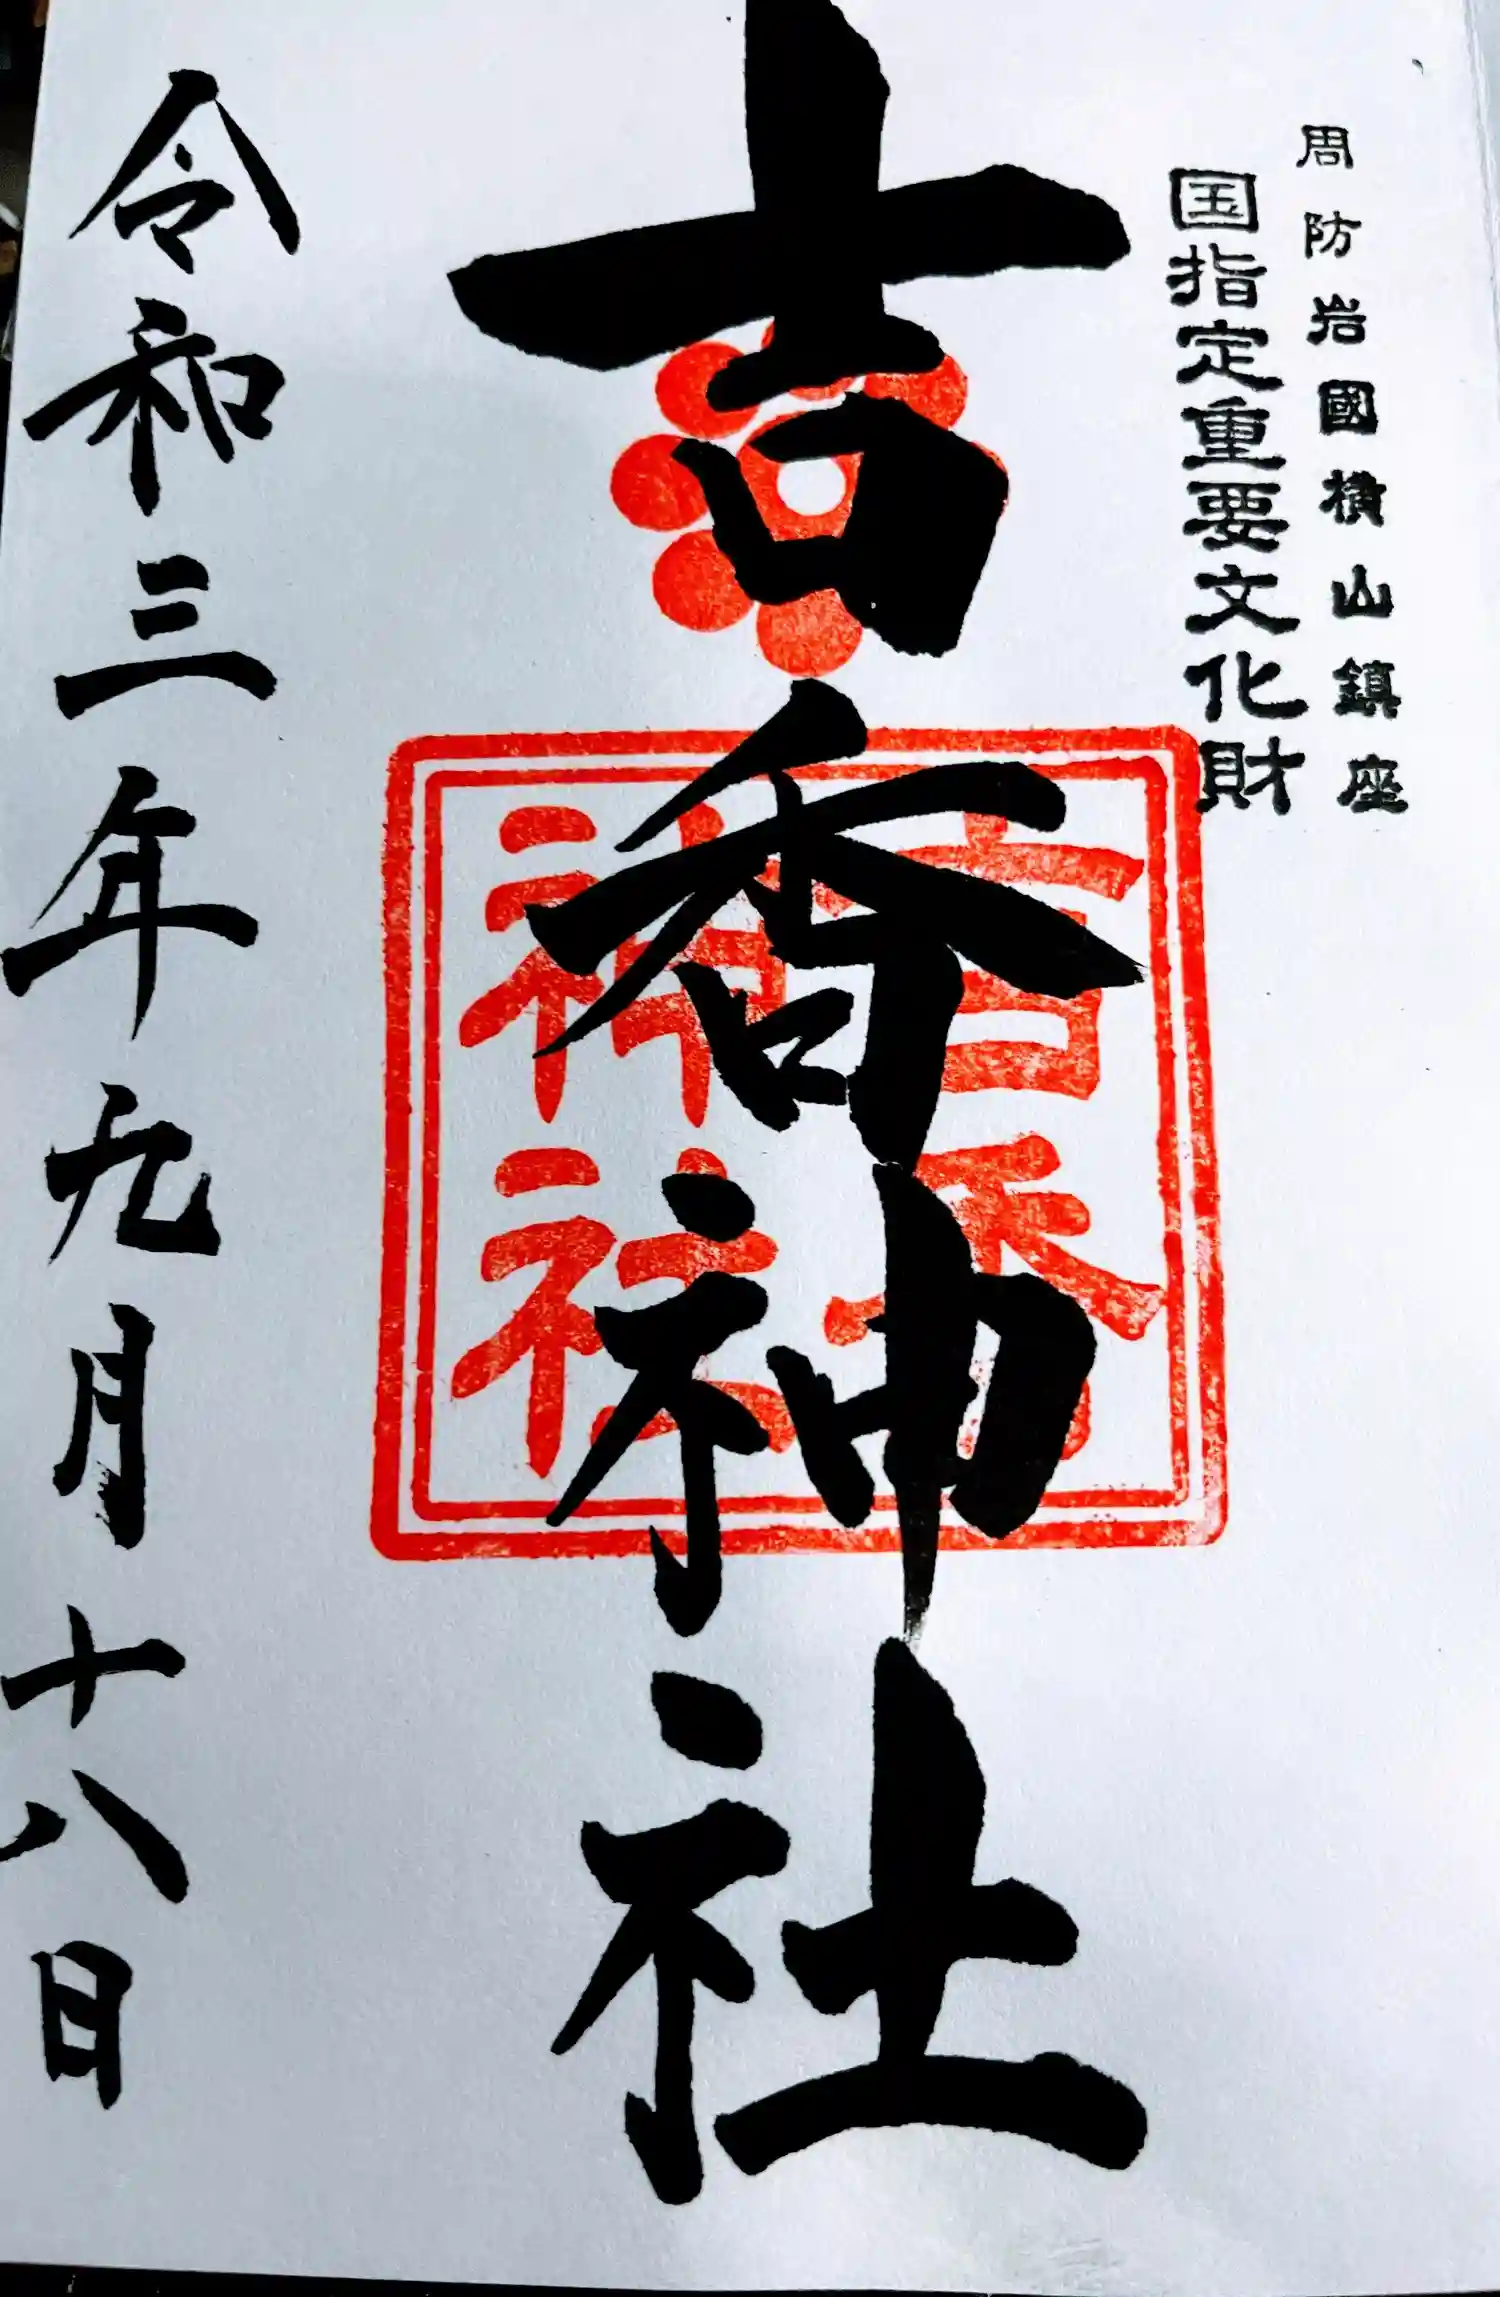 周防岩國横山鎮座
国指定重要文化財
吉香神社
吉香
神社
令和三年九月十八日